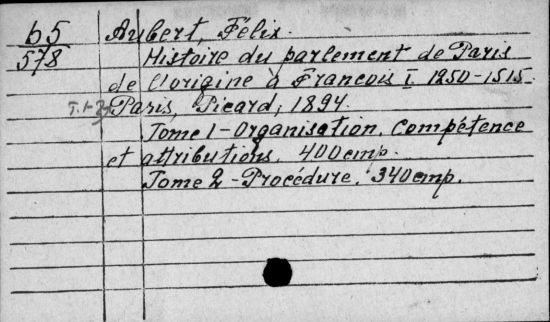 65 Aubert, Félix.
578 Histoire du parlement de Paris
de l'origine à Francois I. 1250-1515.
T.1-2 Paris, Picard, 1894.
Tome 1-Organisation. Compétence
et attributions. 400 cmp.
Tome 2-Procédure. 340 cmp.